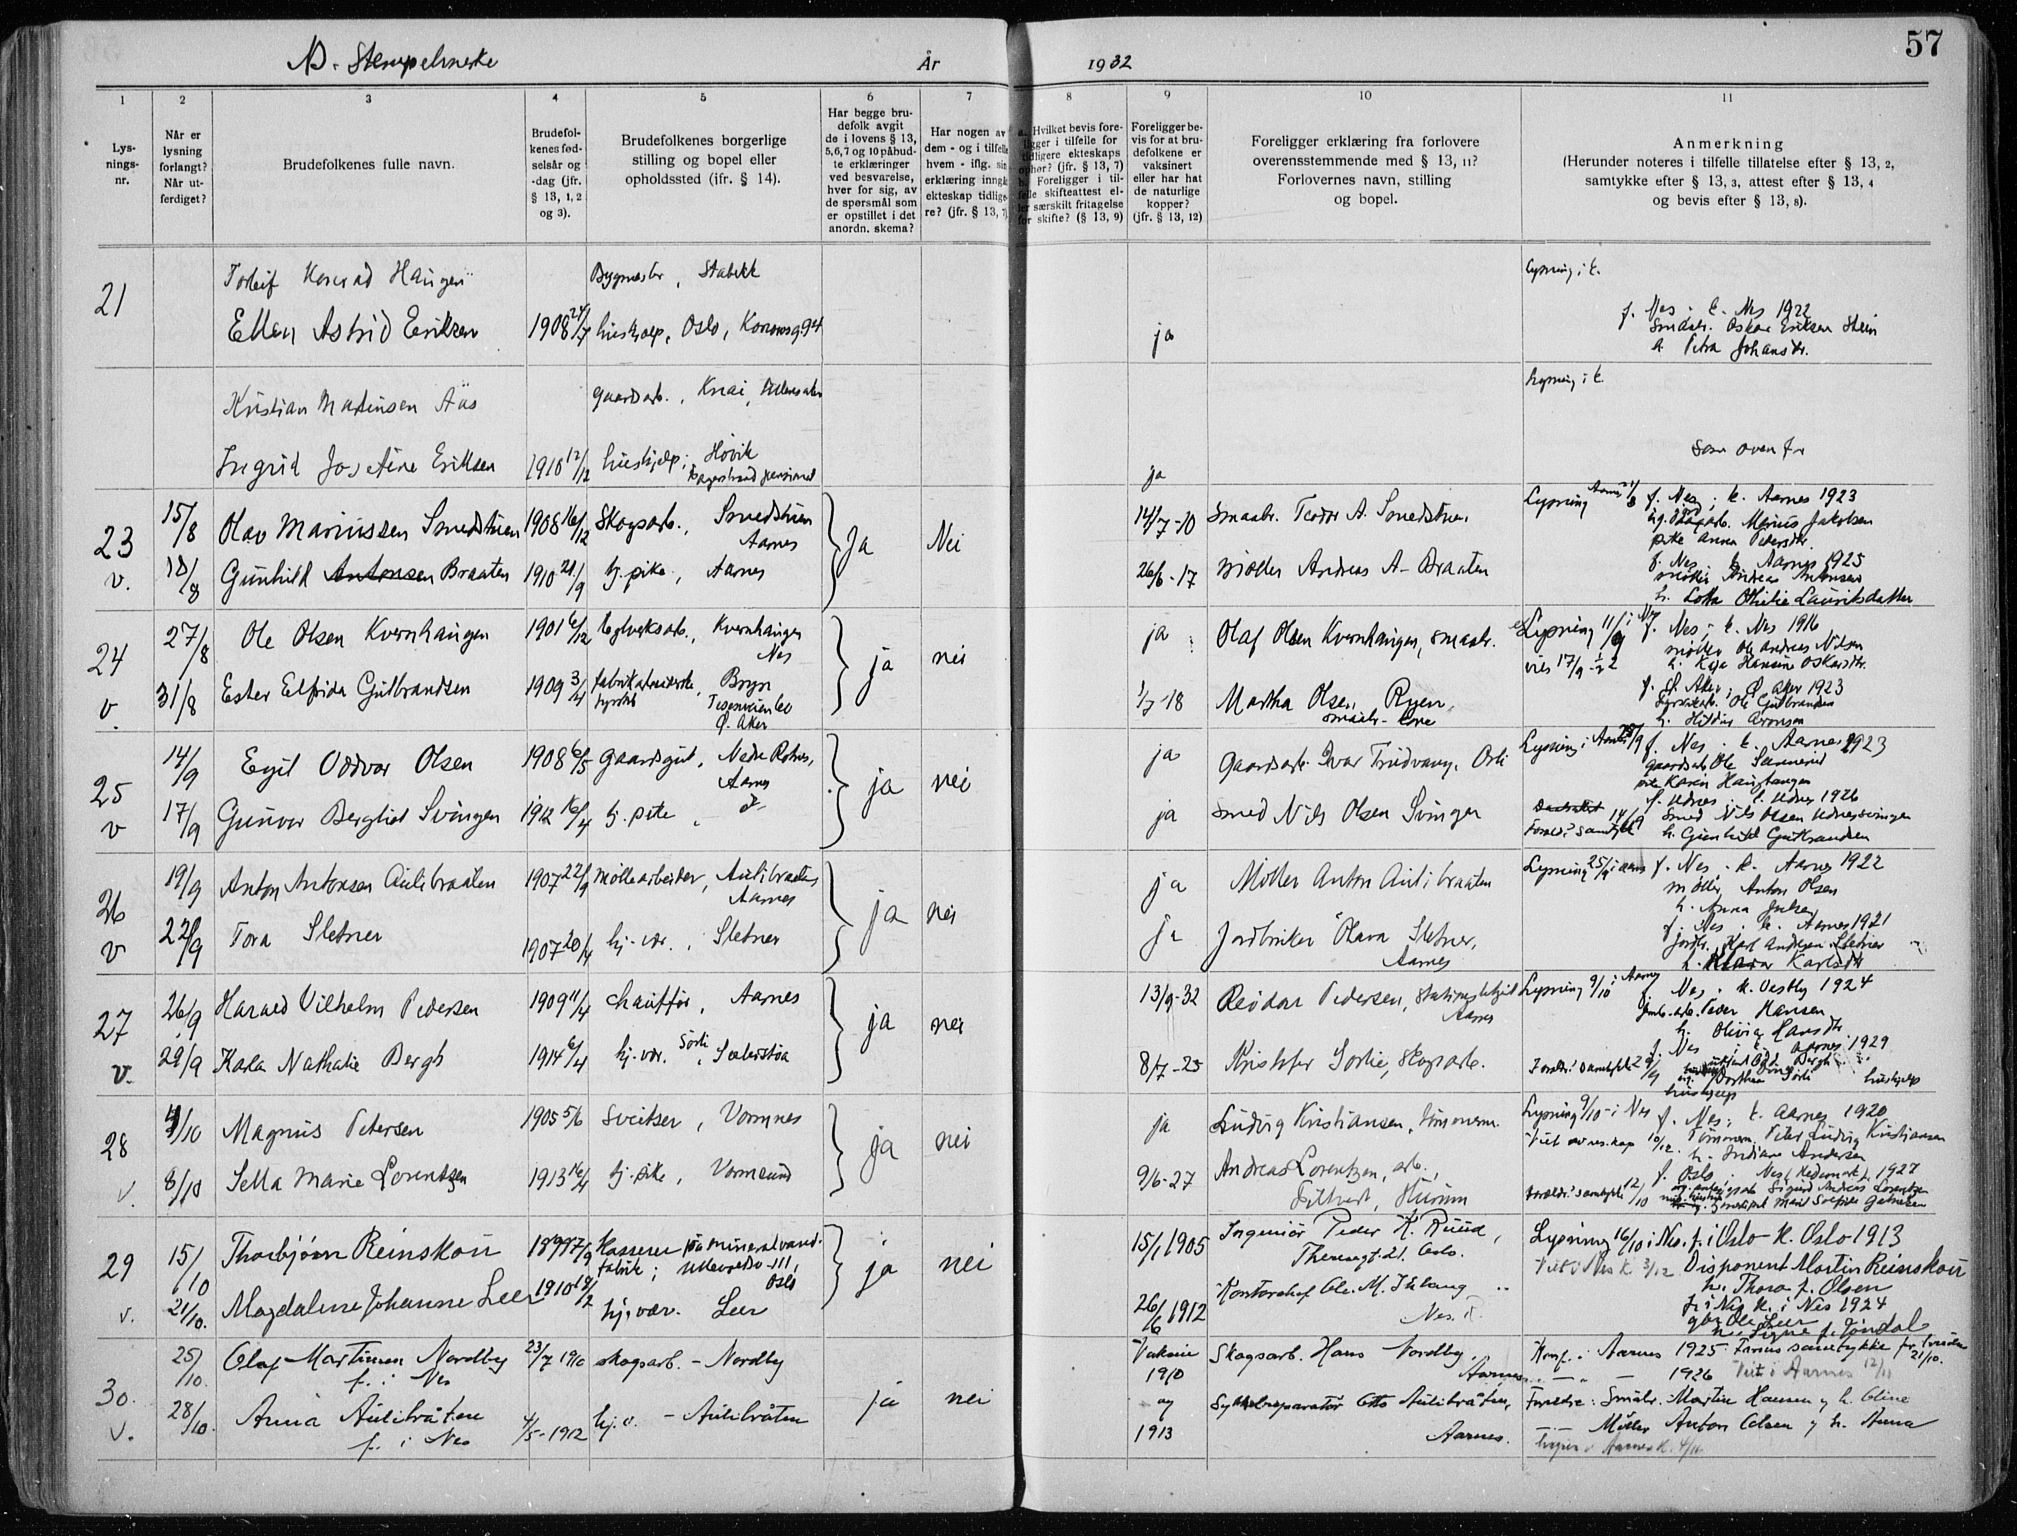 NB. Stempelmerke
År
1932
57
1
2
3
4
5
6
7
8
9
10
11
Lys-
nings-
nr.
Når er
lysning
forlangt?
Når ut-
ferdiget?
Brudefolkenes fulle navn.
Brudefol-
kenes fød-
selsår og
-dag (jfr.
§ 13, 1, 2
og 3).
Brudefolkenes borgerlige
stilling og bopel eller
opholdssted (ifr. § 14).
Har begge bru-
defolk avgit
de i lovens § 13,
5,6,7 og 10 påbud-
te erklæringer
ved besvarelse,
hver for sig, av
de spørsmål som
er opstillet i det
anordn. skema?
Har nogen av
dem - og i tilfelle
hvem - iflg. sin
erklæring inngå
ekteskap tidlige-
re? (jfr. § 13, 7)
a. Hvilket bevis fore-
ligger i tilfelle for
tidligere ekteskaps
ophør? (jfr. § 13, 7)
b. Foreligger i til-
felle skifteattest el-
ler særskilt fritagelse
for skifte? (§ 13, 9)
Foreligger be-
vis for at bru-
defolkene er
vaksinert
eller har hat
de naturlige
kopper?
(jfr. § 13, 12)
Foreligger erklæring fra forlovere
overensstemmende med § 13, 11?
Forlovernes navn, stilling
og bopel.
Anmerkning
(Herunder noteres i tilfelle tillatelse efter § 13, 2,
samtykke efter § 13, 3, attest efter § 13, 4
og bevis efter § 13, 8).
21
Torleif Konrad Haugen
Bygmester, Stabekk
Lysning i k.
Ellen Astrid Eriksen
1908 24/7
hushjelp, Oslo,
ja
f. Nes. k. Nes 1922
Smabr. Oskar Eriksen
Petra Johansdr.
Kristian Martinsen Aas
gaardsarb.,
Lysning i k.
Ingrid Josefine Eriksen
1910 12/12
hushjelp, Høvik
pensionat
ja
Som ovenfor
23
v.
15/8
Olav Mariussen Smedstuen
1908 16/12
Skogsarb., Smedstuen
Aarnes
Ja
Nei
14/7-10
Smaabr. Teodor A. Smedstuen
Lysning Aarnes 21/8
f. Nes; k. Aarnes 1923
Marius Jakobsen
pike Anna Pedersdtr.
18/8
Gunhild Antonsen Braaten
1910 21/9
hj. pike, Aarnes
26/6-17
møller Andreas A. Braaten
f. Nes k. Aarnes 1925
møller Andreas Antonsen
h. Lotta Othilie Lauritsdatter
24
v.
27/8
Ole Olsen Kvernhaugen
1901 6/12
teglverksarb., Kvernhaugen
Nes
ja
nei
ja
Olaf Olsen Kvernhaugen, smaabr.
Lysning 11/9 i Nes
f. Nes; k. Nes 1916
møller Ole Andreas Nilsen
h. Kaja Hansine Oskarsdtr.
viet 17/9
31/8
Ester Elfrida Gulbrandsen
1909 3/4
fabrikarbeiderske, Bryn
Ø. Aker
1/7-18
Martha Olsen, Ryen,
f. Ø. Aker, Ø. Aker 1923
Ole Gulbrandsen
h. Hilda Aronsen
25
v
14/9
Egil Oddvar Olsen
1908 6/5
gaardsgut, Nedre Rotnes,
Aarnes
ja
nei
ja
Gaardsarb. Ivar Trudvang,
Lysning i Aarnes 25/9
f. Nes. k. Aarnes 1923
gaardsarb Ole
pike Karin Haugtangen
17/9
Gunvor Bergliot Svingen
1912 16/4
hj. pike
ja
smed Nils Olsen Svingen
14/9
f. Udnes. k. Udnes 1926
Smed Nils Olsen Udnessvingen
Foreldr. samtykke
h. Gunhild Gulbrandsen
26
v
19/9
Anton Antonsen Aulibraaten
1907 22/9
møllearbeider, Aulibraaten
Aarnes
ja
nei
ja
Møller Anton Aulibraaten
Lysning 25/9 i Aarnes
f. Nes. k. Aarnes 1922
møller Anton Olsen
h. Anna
22/9
Tora Sletner
1907 20/4
hj. vær., Sletner
ja
Jordbruker Olava Sletner,
Aarnes
f. Nes. k. Aarnes 1921
jordbr. Karl Andersen Sletner
h. Karlsdtr
27
v.
26/9
Harald Vilhelm Pedersen
1909 11/4
chauffør, Aarnes
ja
nei
13/9-32
Reidar Pedersen, stationsbetjent
Aarnes
Lysning 9/10 i Aarnes
f. Nes. k. Vestby 1924
jernb. arb. Peder Hansen
h. Olivia Hansdtr
29/9
Kara Nathalie Bergh
1914 6/4
hj. vær. Sörli, Sæterstøa
8/7-25
Kristofer Sörlie, skogsarb.
f. Nes k. Aarnes 1929
Foreldr. samtykke 29/9
Bergh
Dorthea Sörli
hushjelp
28
v.
4/10
Magnus Petersen
1905 5/6
Sveitser, Vormnes
ja
nei
ja
Ludvig Kristiansen, tömmerm.
Lysning 9/10 i Nes
f. Nes; k. Aarnes 1920
Tömmerm. Peter Ludvig Kristiansen
Viet av res. kap
h. Indiane Andersen
8/10
Sella Marie Lorentzen
1913 16/4
hj. pike, Vormsund
9/6-27
Andreas Lorentzen, arb.
Filtvet, Hurum
f. Oslo, Nes, Hedemark, 1927
Foreldr. samtykke 12/10
Sigurd Andreas Lorentzen
29
v.
15/10
Thorbjørn Reinskou
1899 7/9
Kasserer på mineralvand-
fabrik; Ullevoldsv. 111,
Oslo
ja
nei
15/1 1905
Ingeniør Peder K. Ruud,
Theresegt. 21. Oslo.
Lysning 16/10 i Nes. f. i Oslo - k. Oslo 1913
Viet i Nes k. 3/12
Disponent Martin Reinskou
h. Thora f. Olsen
21/10.
Magdalene Johanne Leer
1910 19/2
hj. vær. Leer
26/6 1912
Kontorchef Ole. M.
Nes.
f. i Nes k. i Nes 1924
gbr. Ole Leer
h. Signe f. Jøndal
30.
v.
25/10.
Olaf Martinsen Nordby
f. i Nes
23/7 1910
skogsarb. - Nordby
ja
nei
Vaksine
1910
Skogsarb. Hans Nordby.
Aarnes
Konf. i Aarnes 1925. Farens samtykke for bruden
21/10.
1926
Viet i Aarnes 12/11
28/10.
Anna Aulibråten
f. i Nes
4/5-1912
hj. v. - Aulibråten
og
1913
Sykkelreparatør Otto Aulibråten,
Aarnes.
Foreldre: Småbr. Martin Hansen og h. Oline
Møller Anton Olsen og h. Anna
Lysn. i Aarnes k.